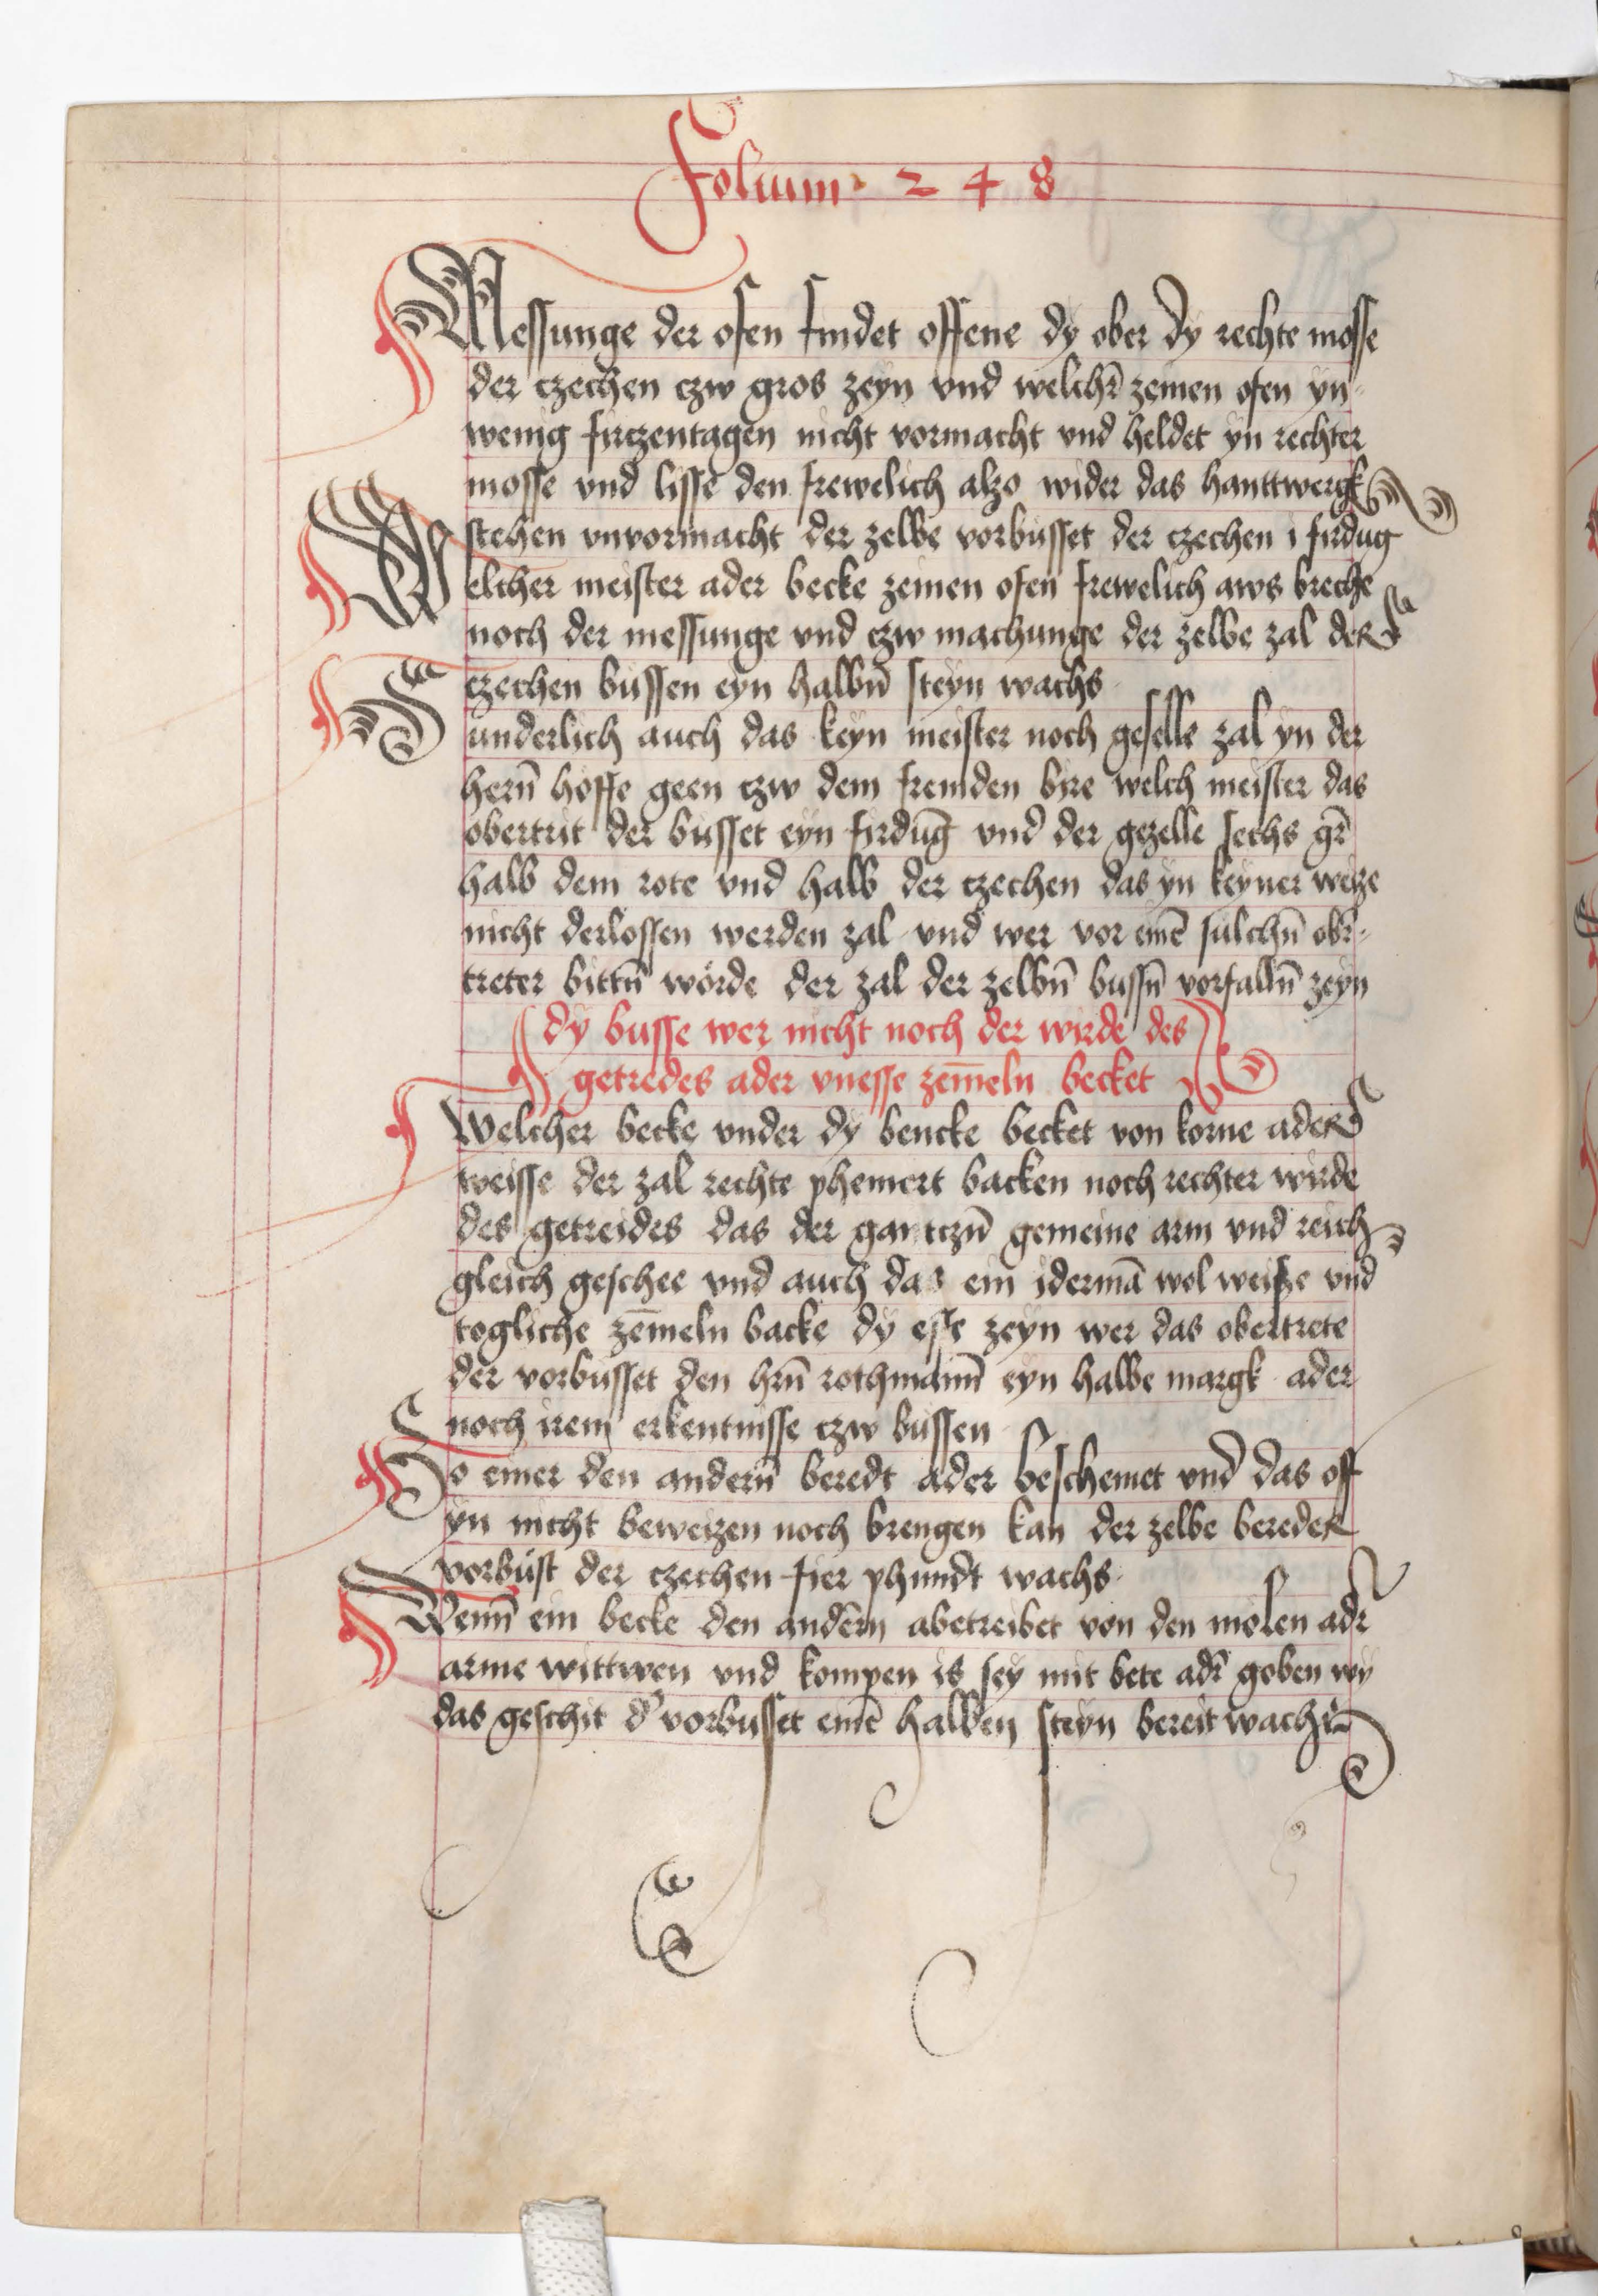 Folium 248
Messunge der ofen findet offene dy ober dy rechte mosse
der czechen czw gros zeyn vnd welchr̄ zeinen ofen yn-
wenig firczentagen nicht vormacht vnd heldet yn rechter
mosse vnd lisse den frewelich alzo wider das hanttwergk
stehen vnvormacht der zelbe vorbusset der czechen i firdug
Welcher meister ader becke zeinen ofen frewelich aws breche
noch der messunge vnd czw machunge der zelbe zal der
czechen bussen eyn halbn̄ steyn wachs
Sunderlich auch das keyn meister noch geselle zal yn der
hern̄ hoffe geen czw dem fremden bire welch meister das
obertrit der busset eyn firdūg vnd der gezelle sechs gr̄
halb dem rote vnd halb der czechen das yn keyner weize
nicht derlossen werden zal vnd wer vor einē sulchn̄ obr̄-
treter bittn̄ wörde der zal der zelbn̄ bussn̄ vorfalln̄ zeyn
dy busse wer nicht noch der wirde des
getredes ader vnesse zem̄eln becket
Welcher becke vnder dy bencke becket von korne ader
weisse der zal rechte phenwert backen noch rechter wirde
des getreides das der gantczn̄ gemeine arm vnd reich
gleich geschee vnd auch das ein idermā wol weisze vnd
togliche zēmeln backe dy esse zeyn wer das obertrete
der vorbusset den hrn̄ rothmann̄ eyn halbe margk ader
noch irem erkentnisse czw bussen
So einer den andern̄ beredt ader beschemet vnd das off
yn nicht beweizen noch brengen kan der zelbe bereder
vorbust der czechen fier phundt wachs
Wenn̄ ein becke den andērn abetreibet von den molen adr̄
arme wittwen vnd kompen is sey mit bete adr̄ goben wy
das geschit d' vorbusset einē halben steyn bereit wachs